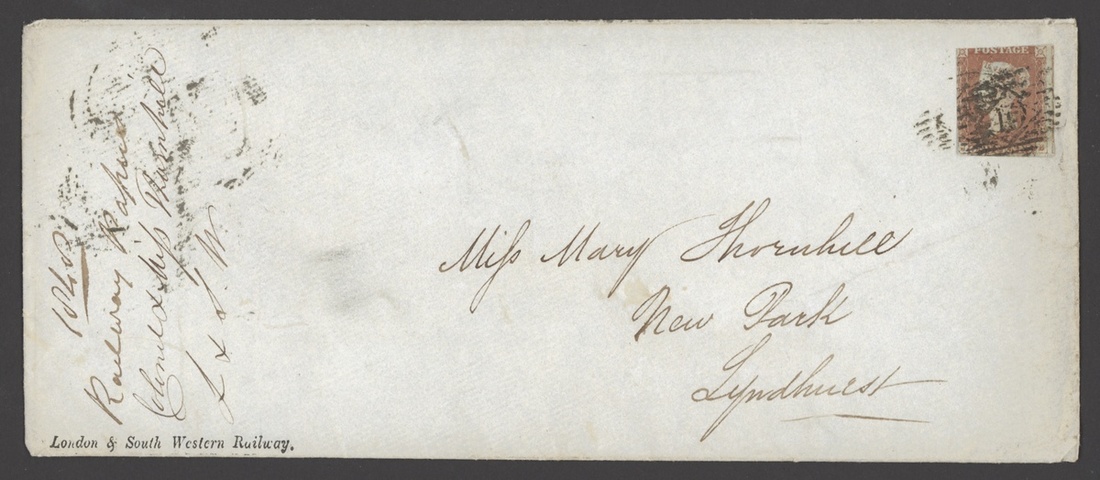 POSTAGE
Miss Mary Thornhill
New Park
Lyndhurst
1848
Railway Papers
Miss Thornhill
L & S. W
London & South Western Railway.